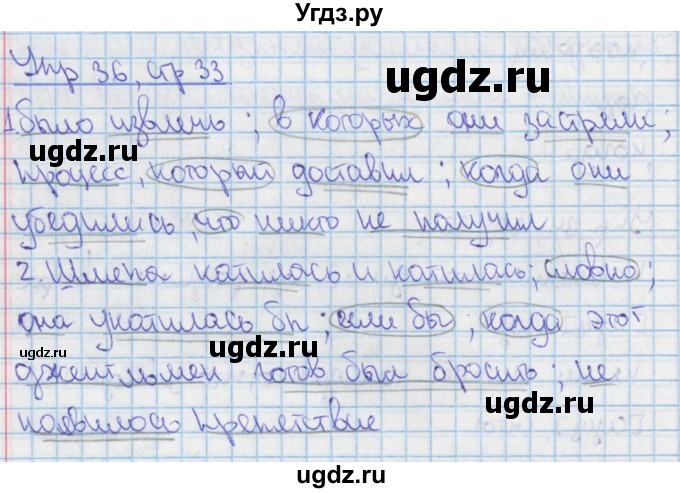 Угдз.ру
Упр 36, стр 33
ugdz.ru
1. было извлечь; в которых они застряли;
ugdz.ru
процесс, который доставил; когда они
ugdz.ru
убедились, что никто не получил
2. Шляпа катилась и катилась; словно;
она укатилась бы; если бы; когда этот
ugdz.ru
ugdz.ru
джентльмен готов был бросить; не
ugdz.ru
появилось препятствие
ugdz.ru